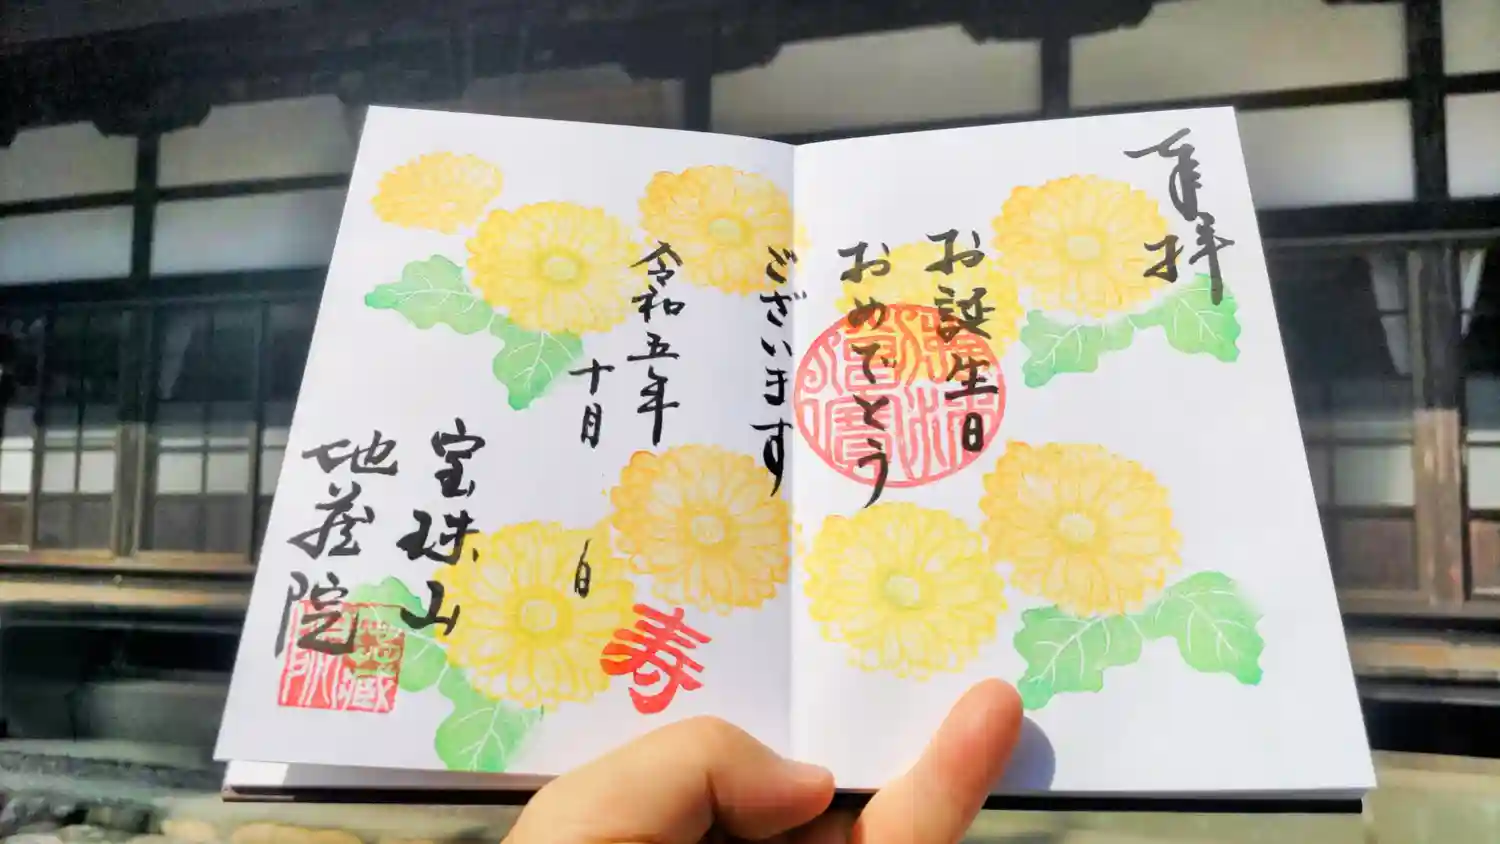 奉拝
お誕生日
おめでとう
ございます
令和五年
十月
日
寿
宝珠山
地蔵院